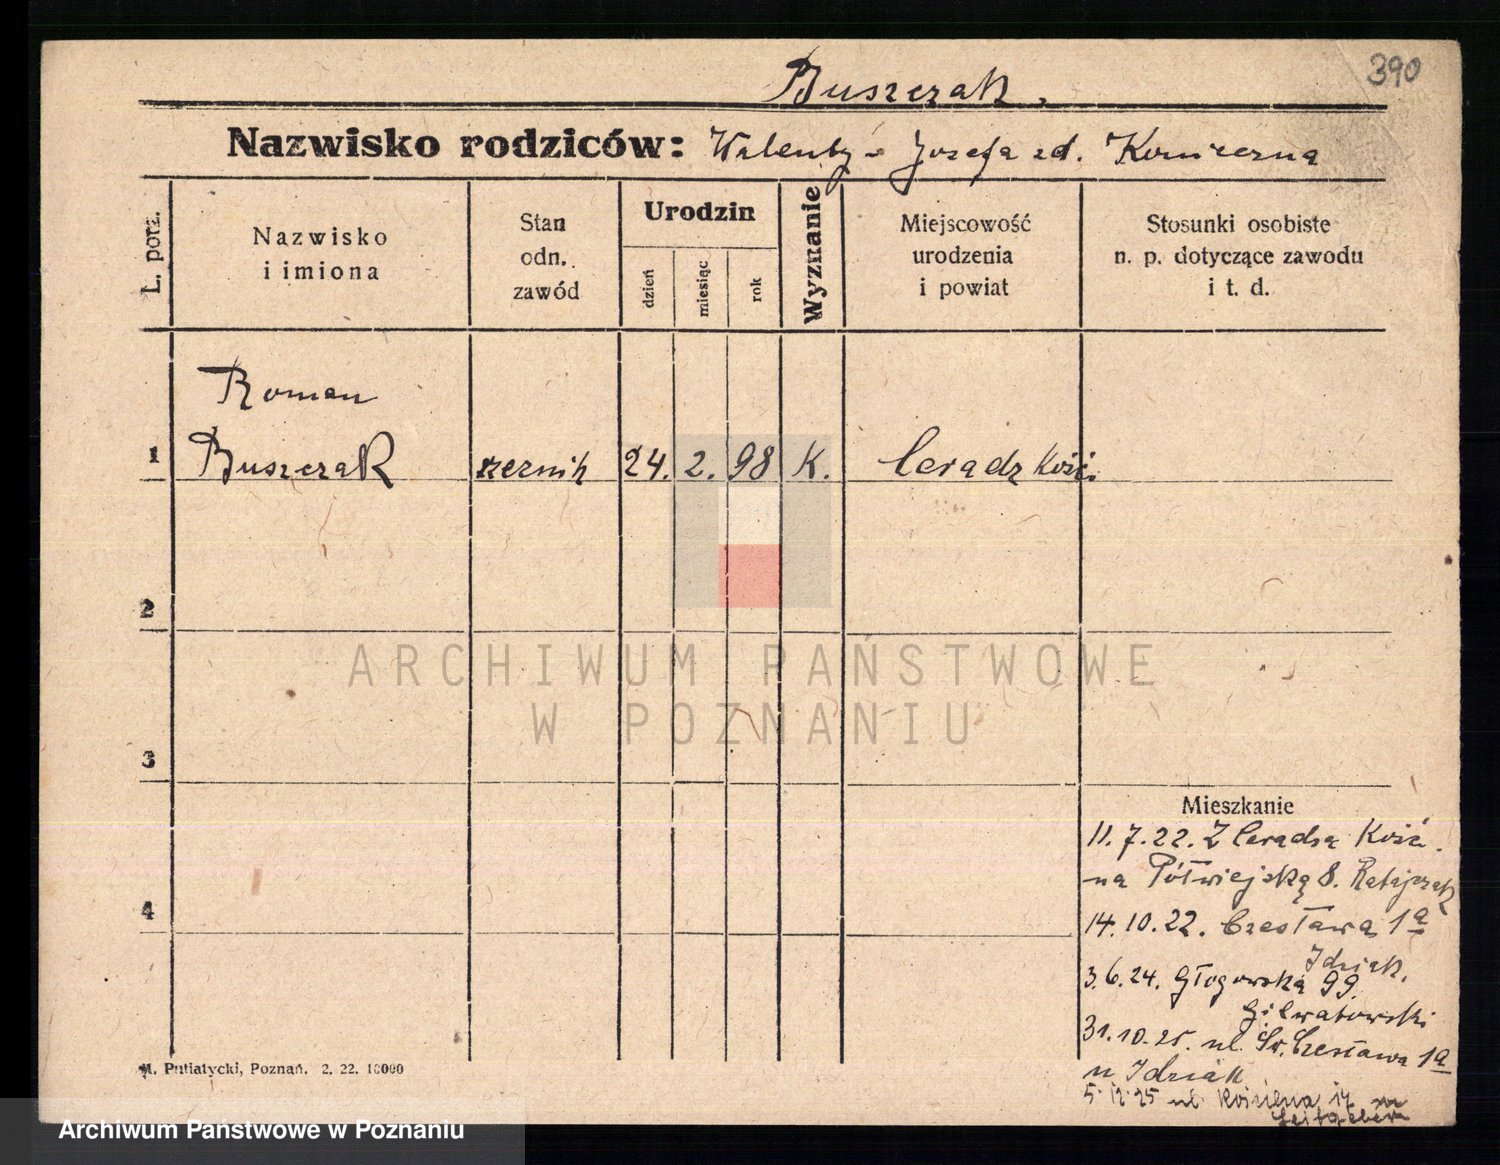 390
Buszczak.
Nazwisko rodziców: Walenty - Józefa zd. Konieczna
L. porz.
Nazwisko
i imiona
Stan
odn.
zawód
Urodzin
dzień
miesiąc
rok
Wyznanie
Miejscowość
urodzenia
i powiat
Stosunki osobiste
n. p. dotyczące zawodu
i t. d.
Roman
1 Buszczak rzeźnik 24. 2. 98 K. Ceradz Kość.
2
ARCHIWUM PAŃSTWOWE
W POZNANIU
3
Mieszkanie
11.7.22. Z Ceradza Kość.
na Półwiejską 8. Ratajczak
4
14.10.22. Czesława 1a
Idziak.
3.6.24. Głogowska 99
31.10.25. ul. Św. Czesława 1a
u Idziak
5.12.25 ul
M. Putiatycki, Poznań. 2. 22. 10000
Archiwum Państwowe w Poznaniu